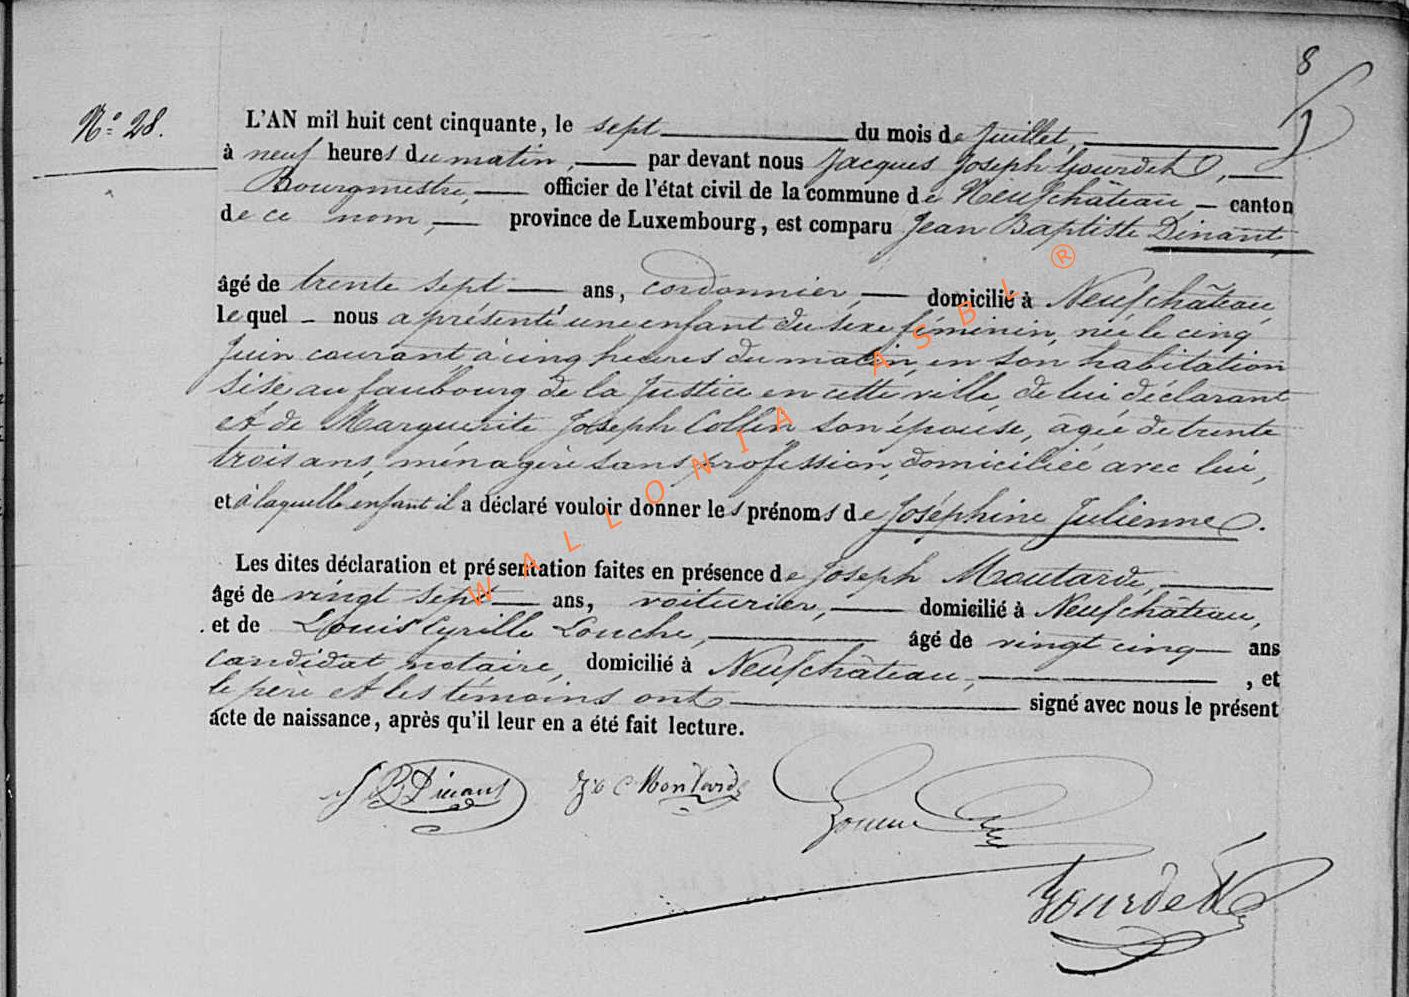 8
N° 28.
L'AN mil huit cent cinquante, le sept du mois de Juillet,
à neuf heures du matin, par devant nous Jacques Joseph Gourdet,
Bourgmestre, officier de l'état civil de la commune de Neufchâteau, canton
de ce nom, province de Luxembourg, est comparu Jean Baptiste Dinant,
âgé de trente sept ans, cordonnier, domicilié à Neufchâteau,
lequel nous a présenté une enfant du sexe féminin, née le cinq
Juin courant à cinq heures du matin, en son habitation
sise au faubourg de la Justice en cette ville, de lui déclarant
et de Marguerite Joseph Collin son épouse, âgée de trente
trois ans, ménagère sans profession, domiciliée avec lui,
et à laquelle enfant il a déclaré vouloir donner les prénoms de Joséphine Julienne.
Les dites déclaration et présentation faites en présence de Joseph Moutarde,
âgé de vingt sept ans, voiturier, domicilié à Neufchâteau,
et de Louis Cyrille Louche, âgé de vingt cinq ans
candidat notaire, domicilié à Neufchâteau, , et
le père et les témoins ont signé avec nous le présent
acte de naissance, après qu'il leur en a été fait lecture.
JB Dinant
Gourdet
WALLONIA ASBL ®